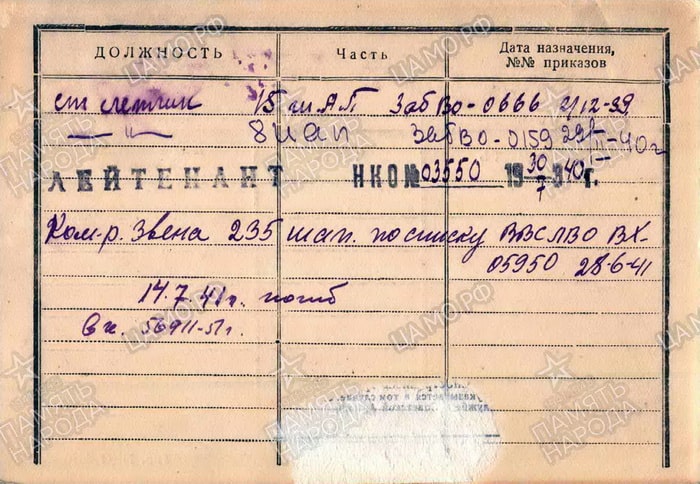 ДОЛЖНОСТЬ Часть Дата назначения, №№ приказов
ст летчик 15 шАП ЗабВо-0666 2/12-39
—〃— 8 иап ЗабВО-0159 29/II-40г
ЛЕЙТЕНАНТ НКО№ 03550 19 30/7 40 г.
Ком-р. Звена 235 шап. по списку ВВСЛВО ВХ-
05950 28-6-41
14.7.41г. погиб
Вх. 56911-51г.
указывается в том случае,
ЦАМО.РФ
ПАМЯТЬ НАРОДА